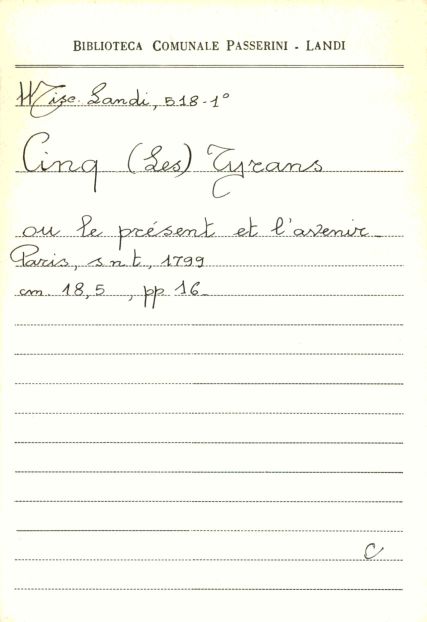 BIBLIOTECA COMUNALE PASSERINI - LANDI
Misc. Landi, 518-1°
Cinq (Les) Tyrans
ou le présent et l'avenir_
Paris, s n t, 1799
cm. 18,5 , pp 16_
C